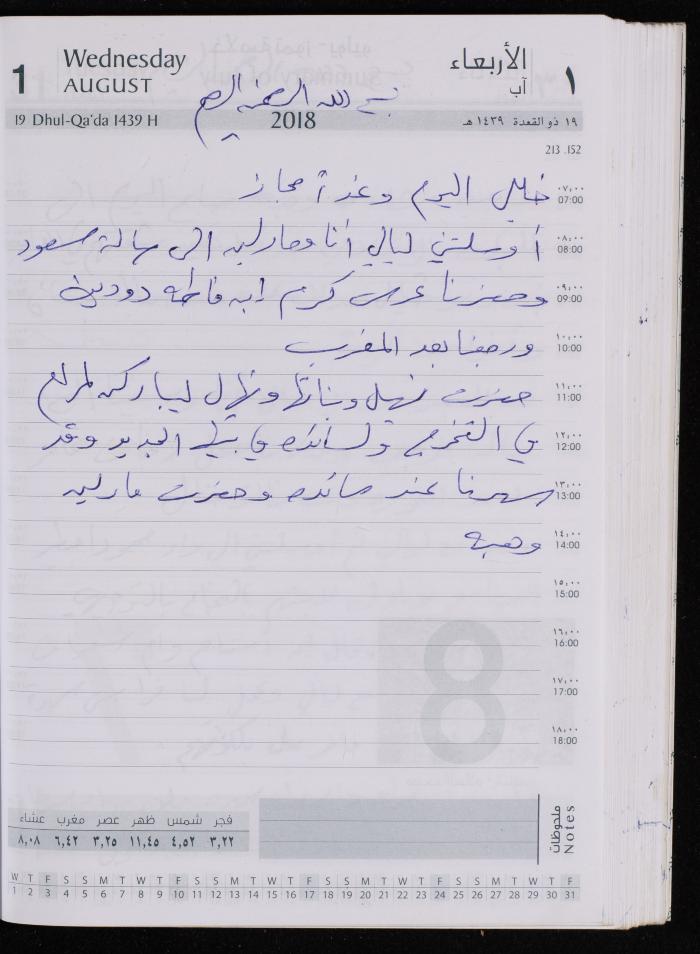 1 Wednesday AUGUST
الأربعاء آب ١
بسم الله الرحمن الرحيم
19 Dhul-Qa'da 1439 H 2018 ١٩ ذو القعدة ١٤٣٩ هـ
213 .152
٠٧,٠٠ 07:00 خليل اليوم وغداً مجاز
٠٨,٠٠ 08:00 أوصلتني ليالي أنا ومارلين الى صالة مسعود
٠٩,٠٠ 09:00 وحضرنا عرس كرم ابن فاطمه دودين
١٠,٠٠ 10:00 ورجعنا بعد المغرب
١١,٠٠ 11:00 حضرت نهيل وبناتها ونهال ليباركن
١٢,٠٠ 12:00 في التخرج ولسائده في بيتها الجديد وقد
١٣,٠٠ 13:00 سهرنا عند سائده وحضرت مارلين
١٤,٠٠ 14:00 وهبه
١٥,٠٠ 15:00
١٦,٠٠ 16:00
١٧,٠٠ 17:00
١٨,٠٠ 18:00
8
فجر شمس ظهر عصر مغرب عشاء
٣,٢٢ ٤,٥٢ ١١,٤٥ ٣,٢٥ ٦,٤٢ ٨,٠٨
ملحوظات
Notes
W T F S S M T W T F S S M T W T F S S M T W T F S S M T W T F
1 2 3 4 5 6 7 8 9 10 11 12 13 14 15 16 17 18 19 20 21 22 23 24 25 26 27 28 29 30 31